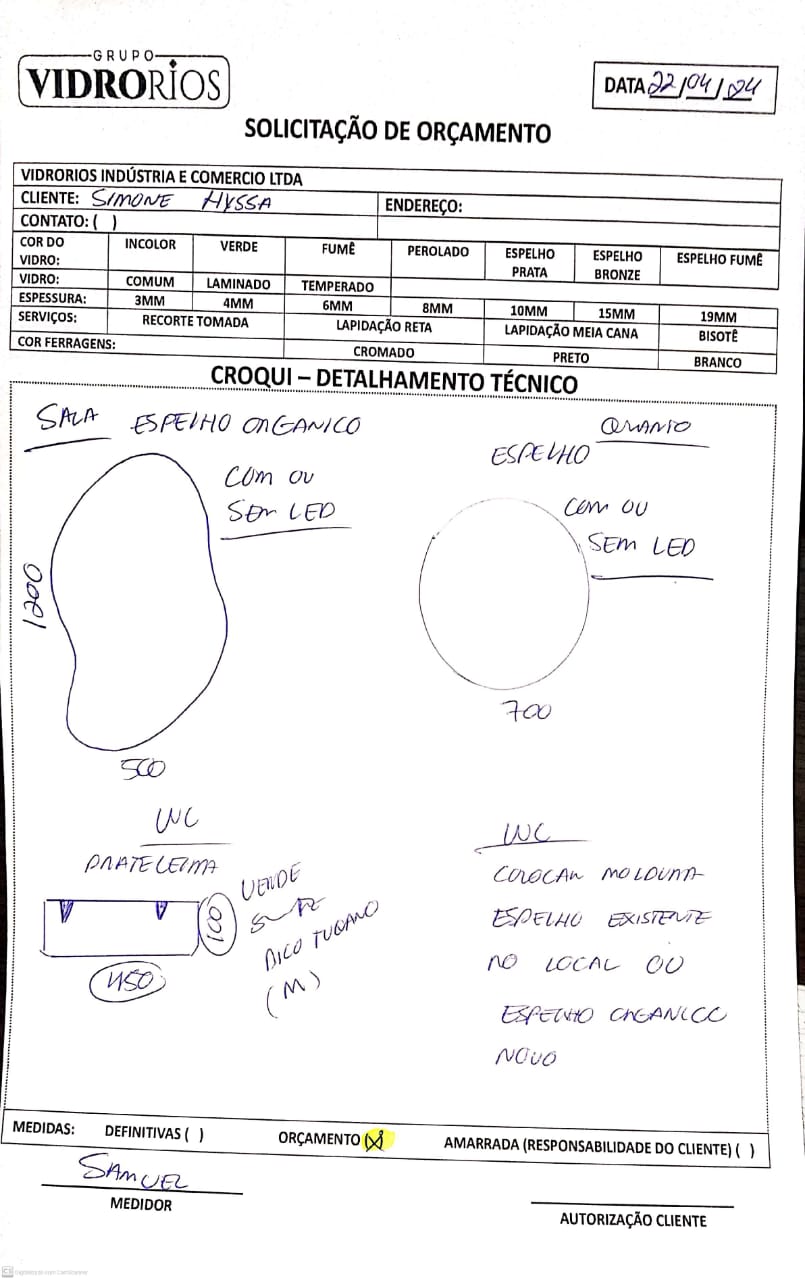 GRUPO
VIDRORIOS
DATA 22/04/24
SOLICITAÇÃO DE ORÇAMENTO
VIDRORIOS INDÚSTRIA E COMERCIO LTDA
CLIENTE: SIMONE HYSSA ENDEREÇO:
CONTATO: ( )
COR DO VIDRO: INCOLOR VERDE FUMÊ PEROLADO ESPELHO PRATA ESPELHO BRONZE ESPELHO FUMÊ
VIDRO: COMUM LAMINADO TEMPERADO
ESPESSURA: 3MM 4MM 6MM 8MM 10MM 15MM 19MM
SERVIÇOS: RECORTE TOMADA LAPIDAÇÃO RETA LAPIDAÇÃO MEIA CANA BISOTÊ
COR FERRAGENS: CROMADO PRETO BRANCO
CROQUI – DETALHAMENTO TÉCNICO
SALA ESPELHO ORGANICO
COM OU
SEM LED
1200
500
QUARTO
ESPELHO
COM OU
SEM LED
700
WC
PRATELEIRA
100
450
VERDE
BICO TUCANO
(M)
WC
COLOCAR MOLDURA
ESPELHO EXISTENTE
NO LOCAL OU
ESPELHO ORGANICO
NOVO
MEDIDAS: DEFINITIVAS ( ) ORÇAMENTO (X) AMARRADA (RESPONSABILIDADE DO CLIENTE) ( )
SAMUEL
MEDIDOR
AUTORIZAÇÃO CLIENTE
CS Digitalizado com CamScanner